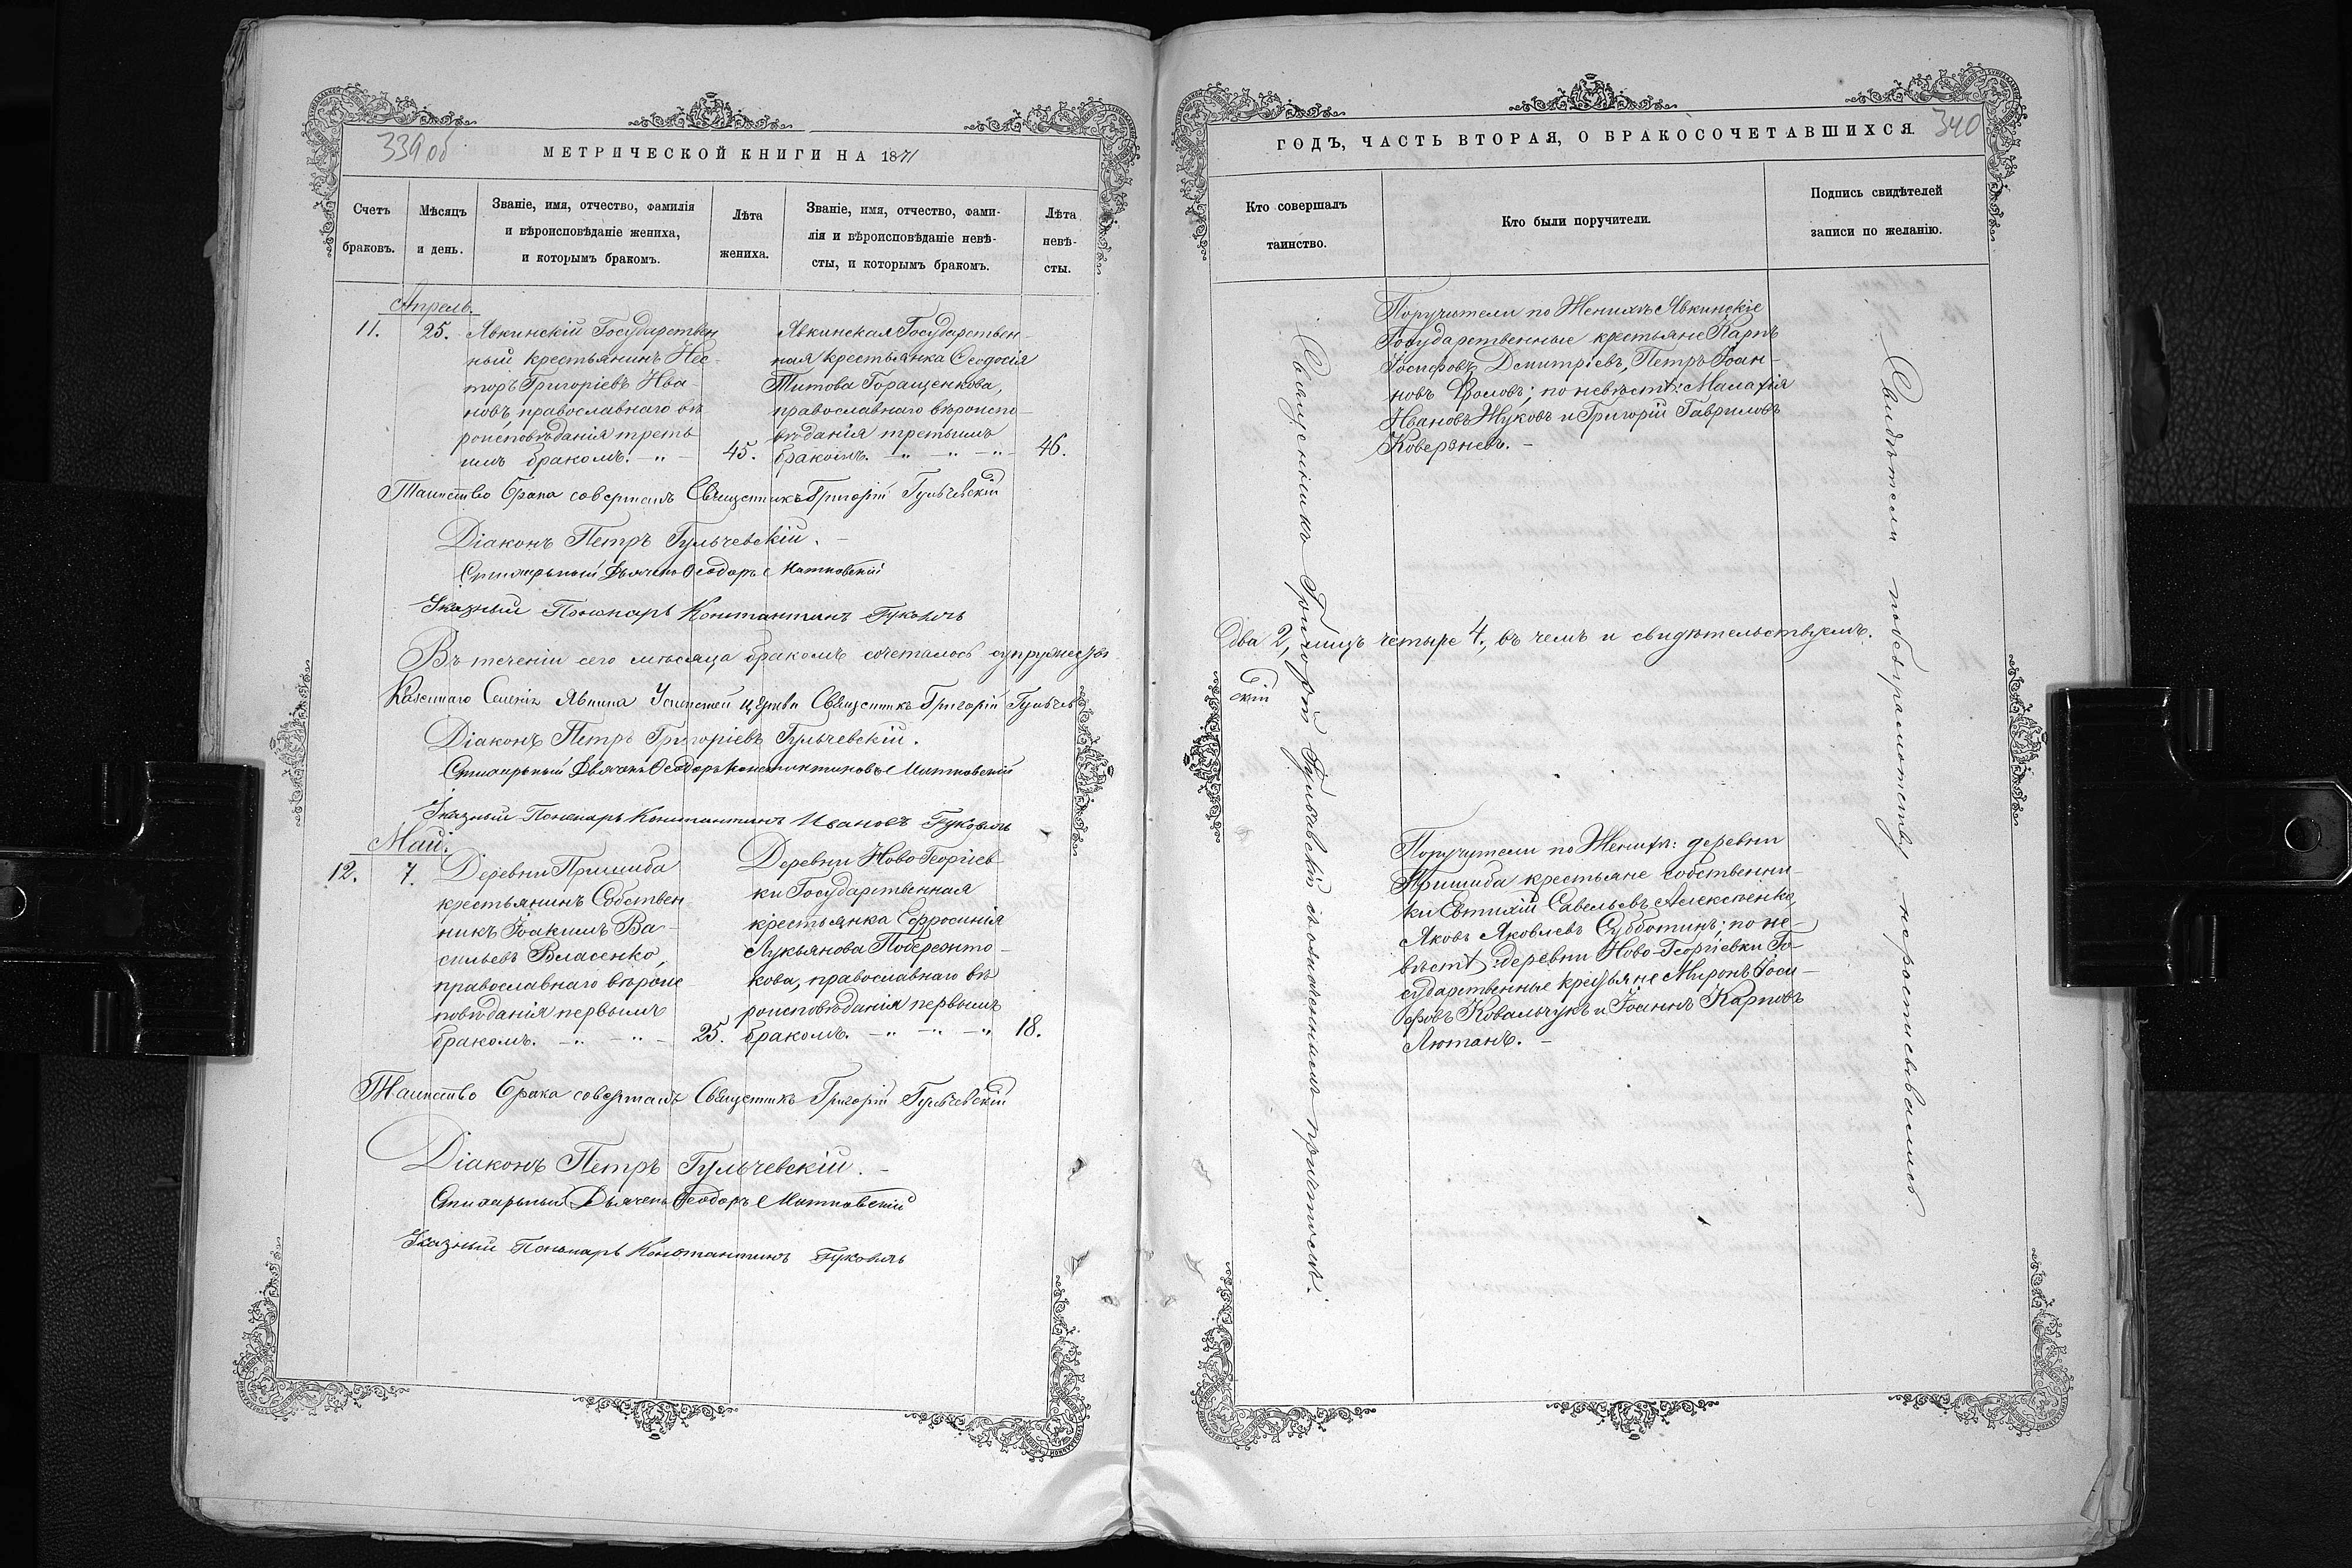 339 об
МЕТРИЧЕСКОЙ КНИГИ НА 1871
Счетъ
браковъ.
Мѣсяцъ
и день.
Званіе, имя, отчество, фамилія
и вѣроисповѣданіе жениха,
и которымъ бракомъ.
Лѣта
жениха.
Званіе, имя, отчество, фами-
лія и вѣроисповѣданіе невѣ-
сты, и которымъ бракомъ.
Лѣта
невѣ-
сты.
Апрель.
11.
25.
Явкинскій Государствен
ный крестьянинъ Нес-
торъ Григоріевъ Ива-
новъ, православнаго вѣ
роисповѣданія треть
имъ бракомъ. - " -
45.
Явкинская Государствен-
ная крестьянка Ѳеодосія
Титова Горащенкова,
православнаго вѣроиспо-
вѣданія третьимъ
бракомъ. - " - " - " -
46.
Таинство брака совершалъ Священникъ Григорій Гульчевскій
Діаконъ Петръ Гульчевскій. -
Стихарный Дьячекъ Ѳеодоръ Матковскій
Указный Пономарь Константинъ Гуковичъ
Въ теченіи сего мѣсяца бракомъ сочеталось супружествъ
Казеннаго Селенія Явкина Успенской церкви Священникъ Григорій Гульчев
Діаконъ Петръ Григоріевъ Гульчевскій.
Стихарный Дьячекъ Ѳеодоръ Константиновъ Матковскій
Указный Пономарь Константинъ Ивановъ Гуковичъ
Май.
12.
7.
Деревни Пришиба
крестьянинъ Собствен
никъ Іоакимъ Ва-
сильевъ Власенко,
православнаго вѣроис
повѣданія первымъ
бракомъ. - " - " -
25.
Деревни Ново-Георгіев
ки Государственная
крестьянка Евфросинія
Лукьянова Побережно-
кова, православнаго вѣ
роисповѣданія первымъ
бракомъ. - " - " - "
18.
Таинство брака совершалъ Священникъ Григорій Гульчевскій
Діаконъ Петръ Гульчевскій. -
Стихарный Дьячекъ Ѳеодоръ Матковскій
Указный Пономарь Константинъ Гуковичъ
340
ГОДЪ, ЧАСТЬ ВТОРАЯ, О БРАКОСОЧЕТАВШИХСЯ.
Кто совершалъ
таинство.
Кто были поручители.
Подпись свидѣтелей
записи по желанію.
Священникъ Григорій Гульчевскій съ означеннымъ причтомъ.
Поручители по Женихѣ Явкинскіе
Государственные крестьяне Карпъ
Іосифовъ Димитріевъ, Петръ Іоан-
новъ Фроловъ; по невѣстѣ: Малахія
Ивановъ Жуковъ и Григорій Гавриловъ
Коверзневъ. -
два 2, лицъ четыре 4, въ чемъ и свидѣтельствуемъ.
скій
Поручители по Женихѣ: деревни
Пришиба крестьяне собственни-
ки Евтихій Савельевъ Алексѣенко,
Яковъ Яковлевъ Субботинъ; по не-
вѣстѣ: деревни Ново-Георгіевки Го-
сударственные крестьяне Миронъ Іоси-
фовъ Ковальчукъ и Іоаннъ Карповъ
Лютанъ. -
Свидѣтели по безграмотству не росписывались.